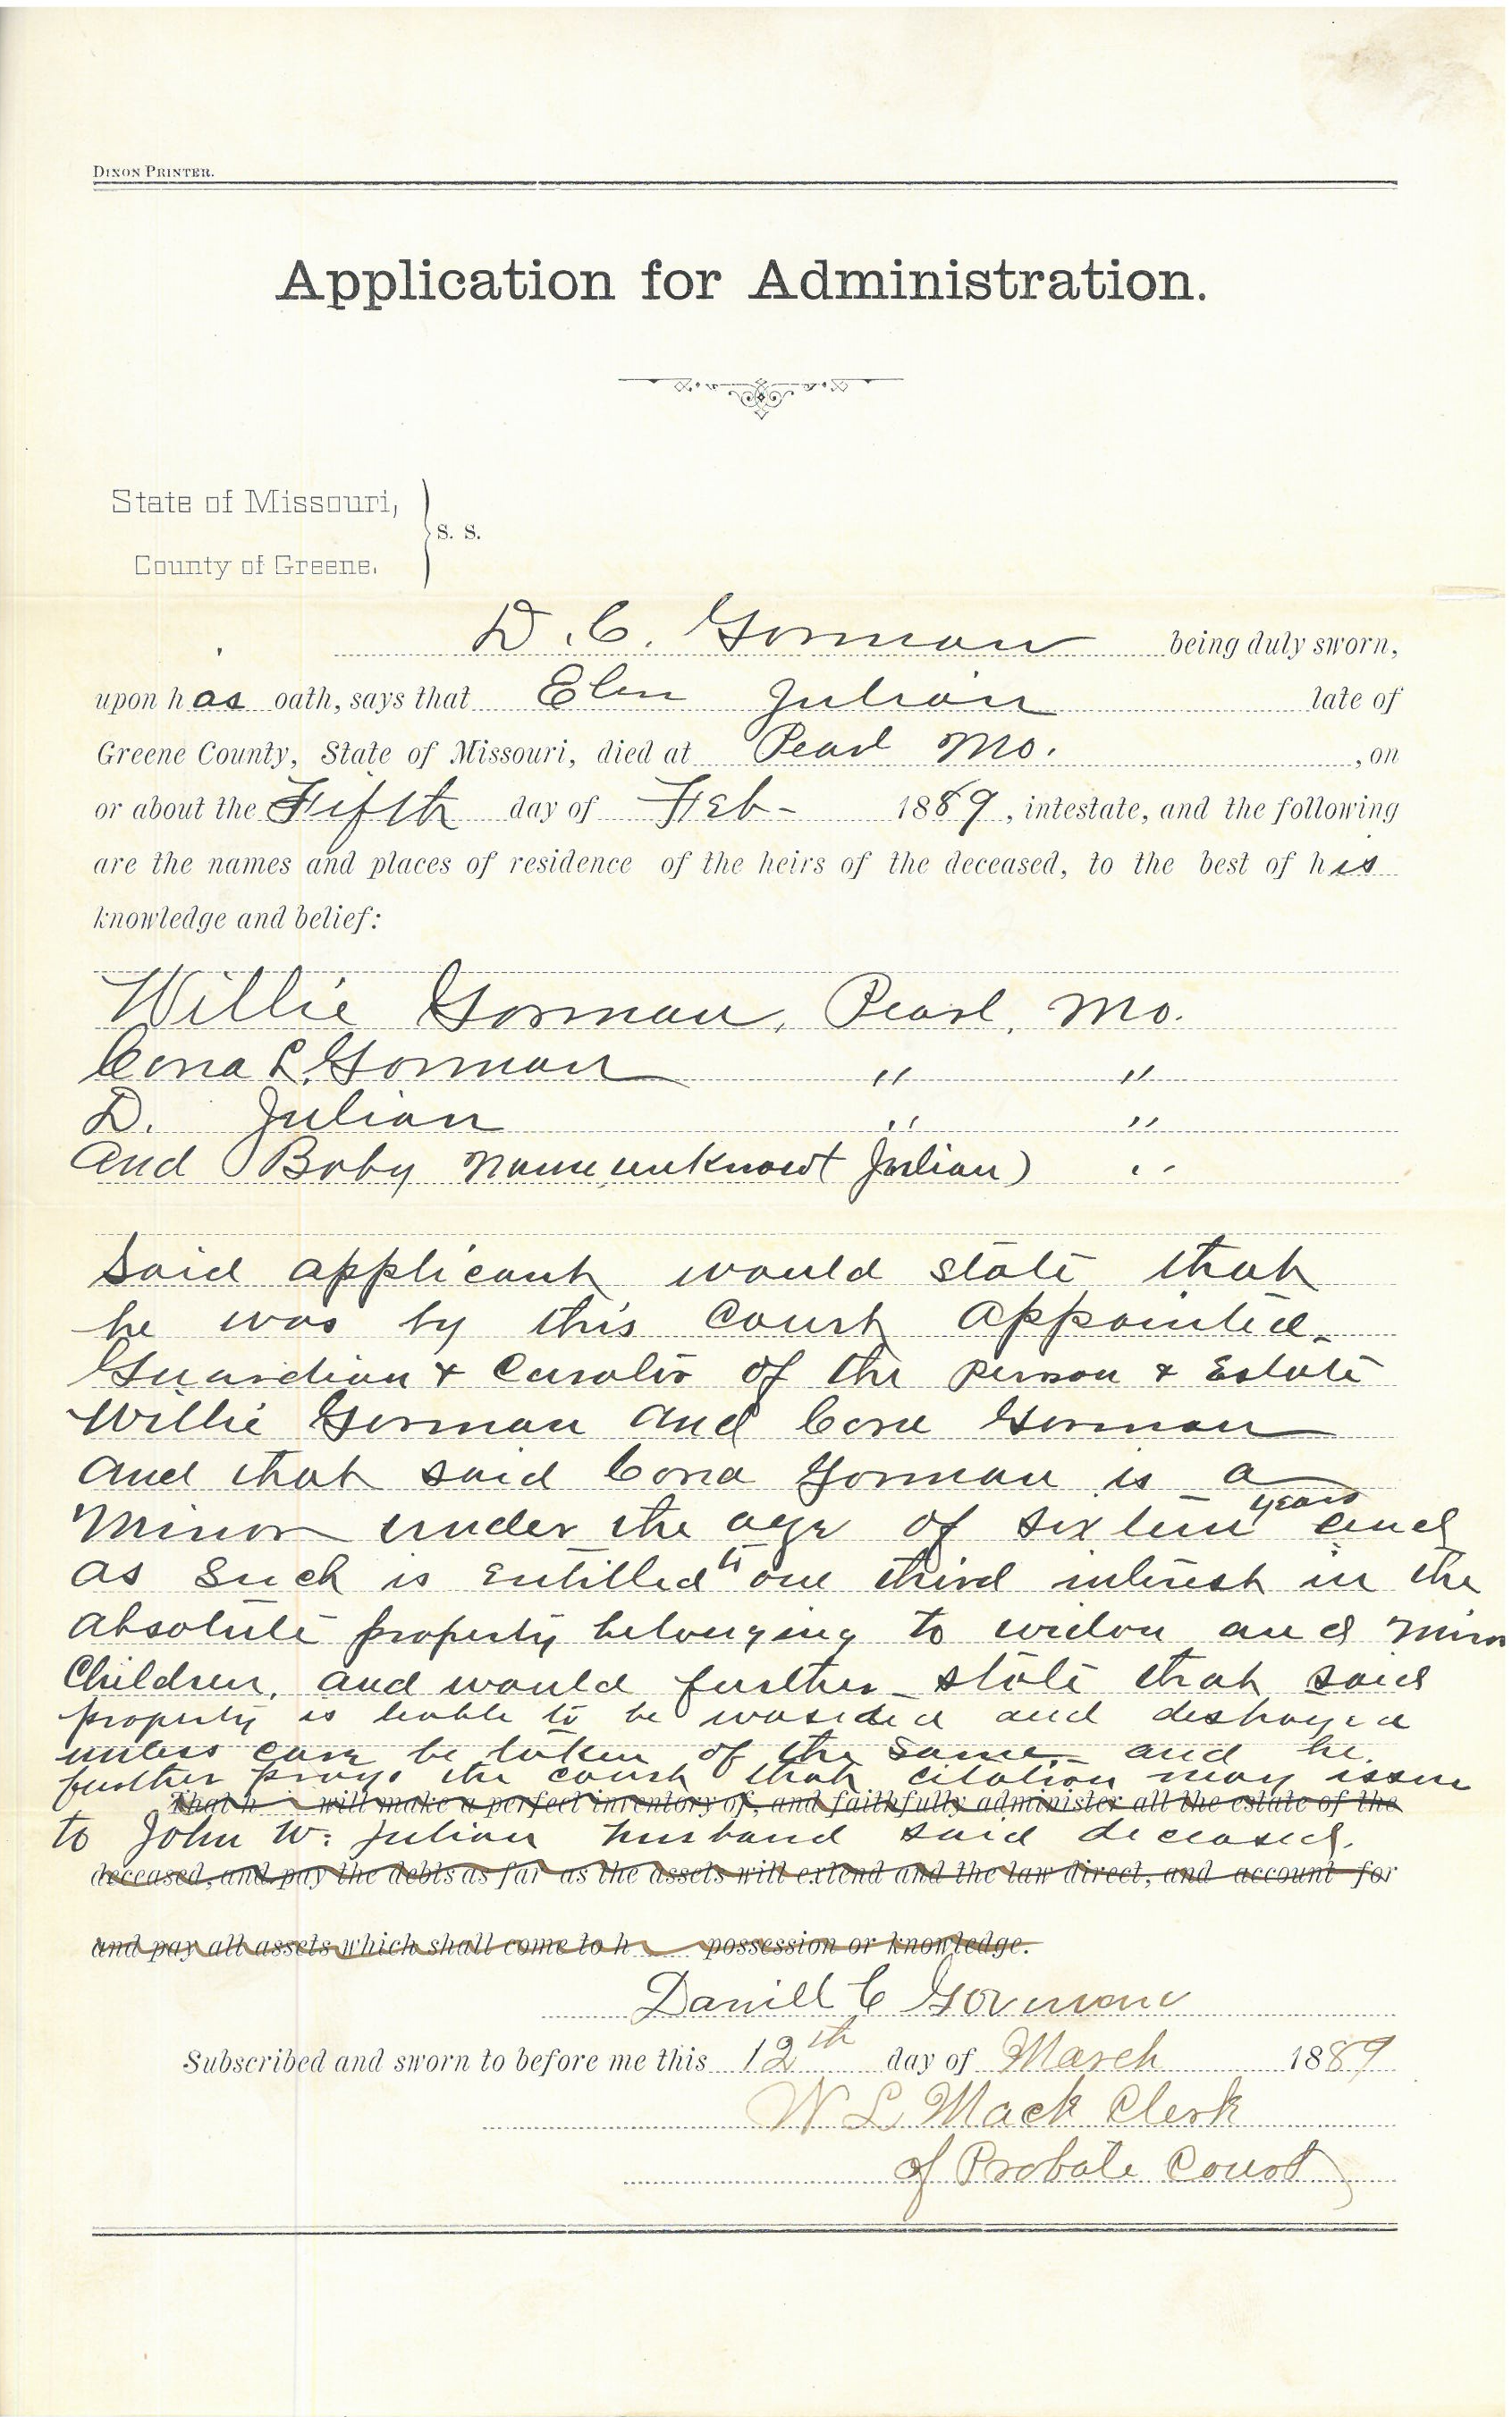 DIXON PRINTER.
Application for Administration.
State of Missouri,
County of Greene.
S. S.
D. C. Gorman being duly sworn,
upon has oath, says that Elen Julian late of
Greene County, State of Missouri, died at Pearl Mo. , on
or about the Fifth day of Feb- 1889, intestate, and the following
are the names and places of residence of the heirs of the deceased, to the best of his
knowledge and belief:
Willie Gorman, Pearl, Mo.
Cora L. Gorman " "
D. Julian " "
And Baby name unknown Julian) "
Said applicant would state that
he was by this Court appointed
Guardian & Curator of the person & Estate
Willie Gorman and Cora Gorman
and that said Cora Gorman is a
Minor under the age of sixteen years and
as such is entitled to one third interest in the
absolute property belonging to widow and minor
Children, and would further state that said
property is liable to be wasted and destroyed
unless care be taken of the same and he
further prays the court that citation may issue
That h will make a perfect inventory of, and faithfully administer all the estate of the
to John W. Julian husband said deceased.
deceased, and pay the debts as far as the assets will extend and the law direct, and account for
and pay all assets which shall come to h possession or knowledge.
Daniell C Gorman
Subscribed and sworn to before me this 12th day of March 1889
W L Mack Clerk
of Probate Court